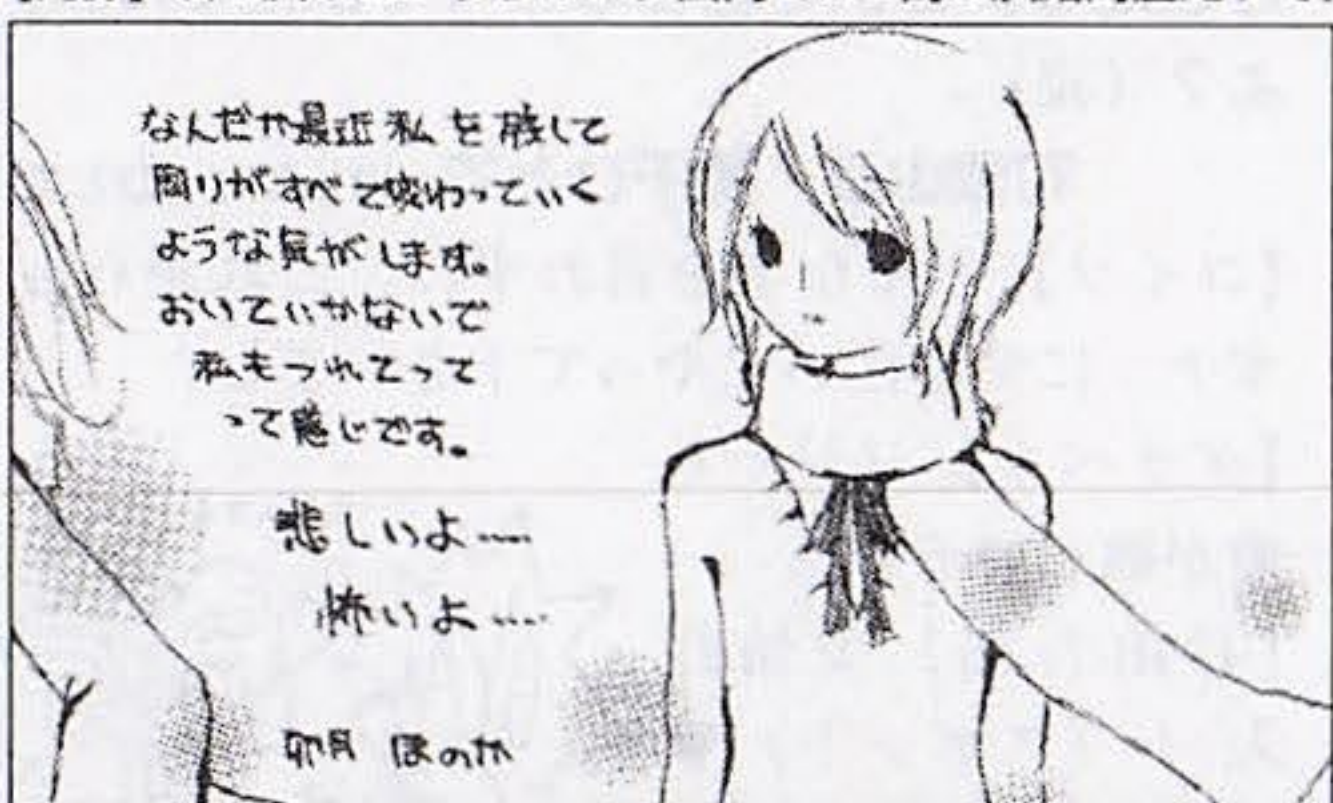 なんだか最近私を残して
周りがすべて変わっていく
ような気がします。
おいていかないで
私もつれてって
って感じです。
悲しいよ……
怖いよ……
卯月 ほのか